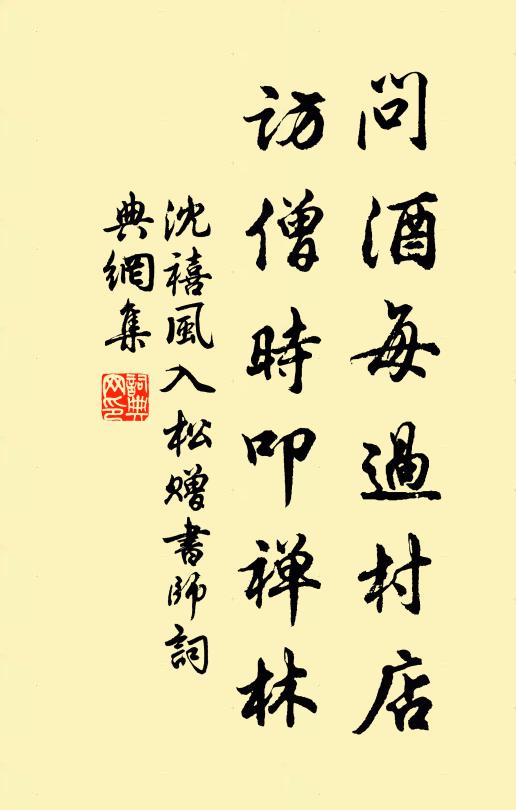 問酒每過村店
訪僧時叩禅林
沈禧風入松赠書師詞
典網集
詞典网印